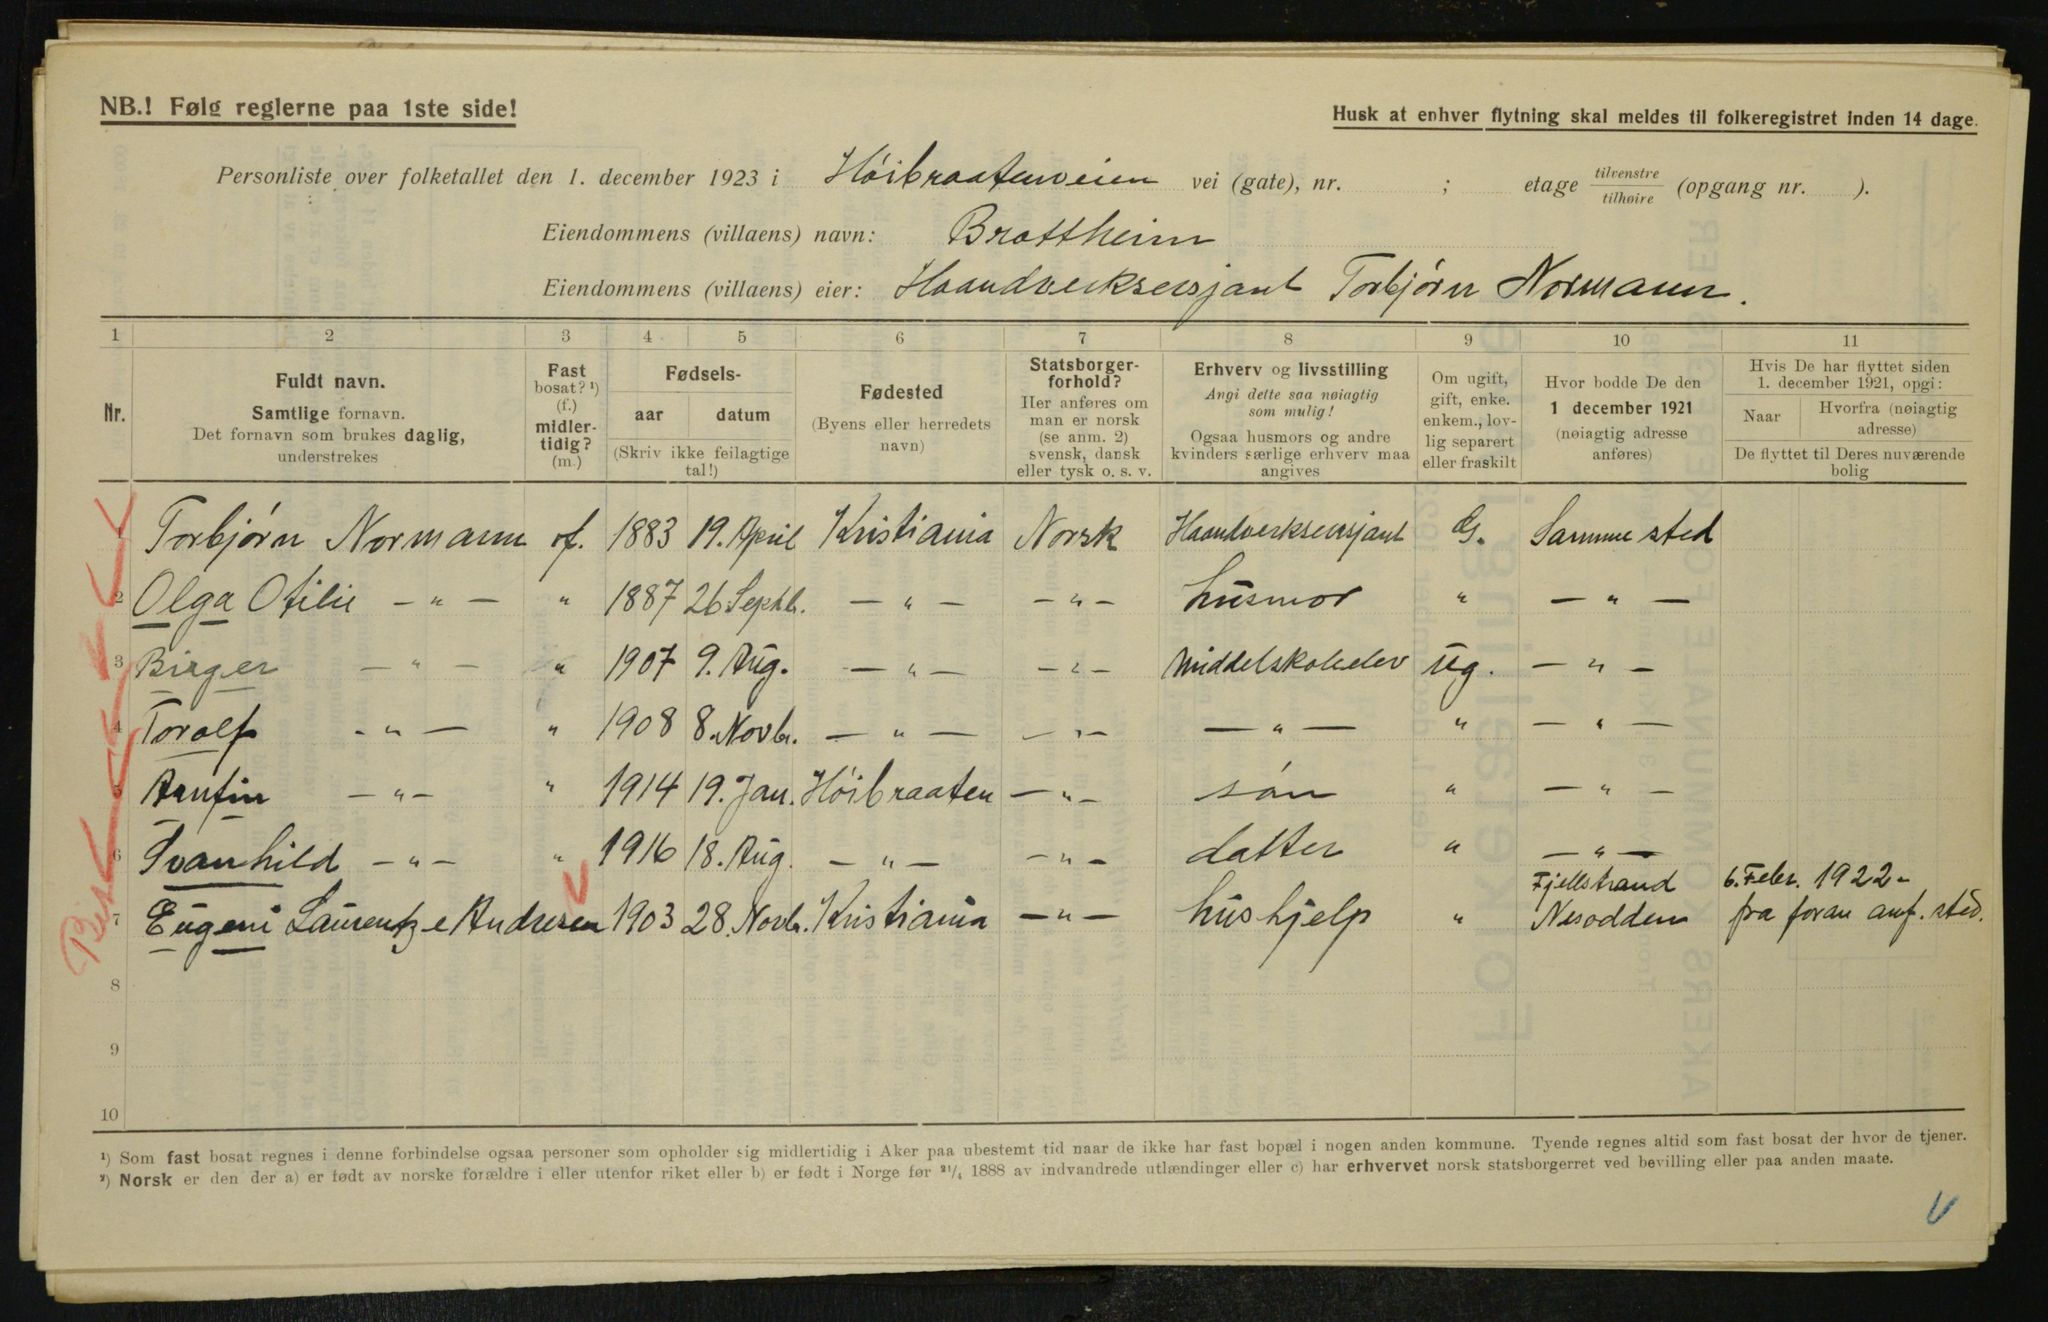 NB.! Følg reglerne paa 1ste side!
Husk at enhver flytning skal meldes til folkeregistret inden 14 dage.
Personliste over folketallet den 1. december 1923 i Høibraatenveien vei (gate), nr. ; etage tilvenstre/tilhøire (opgang nr. ).
Eiendommens (villaens) navn: Brattheim
Eiendommens (villaens) eier: Haandverksersjant Torbjørn Normann.
1 2 3 4 5 6 7 8 9 10 11
Nr.
Fuldt navn.
Samtlige fornavn.
Det fornavn som brukes daglig,
understrekes
Fast
bosat? ¹)
(f.)
midler-
tidig?
(m.)
Fødsels-
aar datum
(Skriv ikke feilagtige
tal!)
Fødested
(Byens eller herredets
navn)
Statsborger-
forhold?
Her anføres om
man er norsk
(se anm. 2)
svensk, dansk
eller tysk o. s. v.
Erhverv og livsstilling
Angi dette saa nøiagtig
som mulig!
Ogsaa husmors og andre
kvinders særlige erhverv maa
angives
Om ugift,
gift, enke,
enkem., lov-
lig separert
eller fraskilt
Hvor bodde De den
1 december 1921
(nøiagtig adresse
anføres)
Hvis De har flyttet siden
1. december 1921, opgi:
Naar Hvorfra (nøiagtig
adresse)
De flyttet til Deres nuværende
bolig
1 Torbjørn Normann f. 1883 19. April Kristiania Norsk Haandverksersjant G. Samme sted
2 Olga Otilie — " — " 1887 26 Septb. — " — — " — husmor " — " —
3 Birger — " — " 1907 9. Aug. — " — — " — Middelskoleelev Ug. — " —
4 Torolf — " — " 1908 8. Novbr. — " — — " — — " — " — " —
5 Arnfin — " — " 1914 19. Jan. Høibraaten — " — søn " — " —
6 Svanhild — " — " 1916 18. Aug. — " — — " — datter " — " —
7 Eugeni Laurentze Andresen 1903 28. Novbr. Kristiania — " — hushjelp " Fjellstrand Nesodden 6. Febr. 1922 - fra foran anf. sted.
8
9
10
¹) Som fast bosat regnes i denne forbindelse ogsaa personer som opholder sig midlertidig i Aker paa ubestemt tid naar de ikke har fast bopæl i nogen anden kommune. Tyende regnes altid som fast bosat der hvor de tjener.
²) Norsk er den der a) er født av norske forældre i eller utenfor riket eller b) er født i Norge før ²¹/₄ 1888 av indvandrede utlændinger eller c) har erhvervet norsk statsborgerret ved bevilling eller paa anden maate.